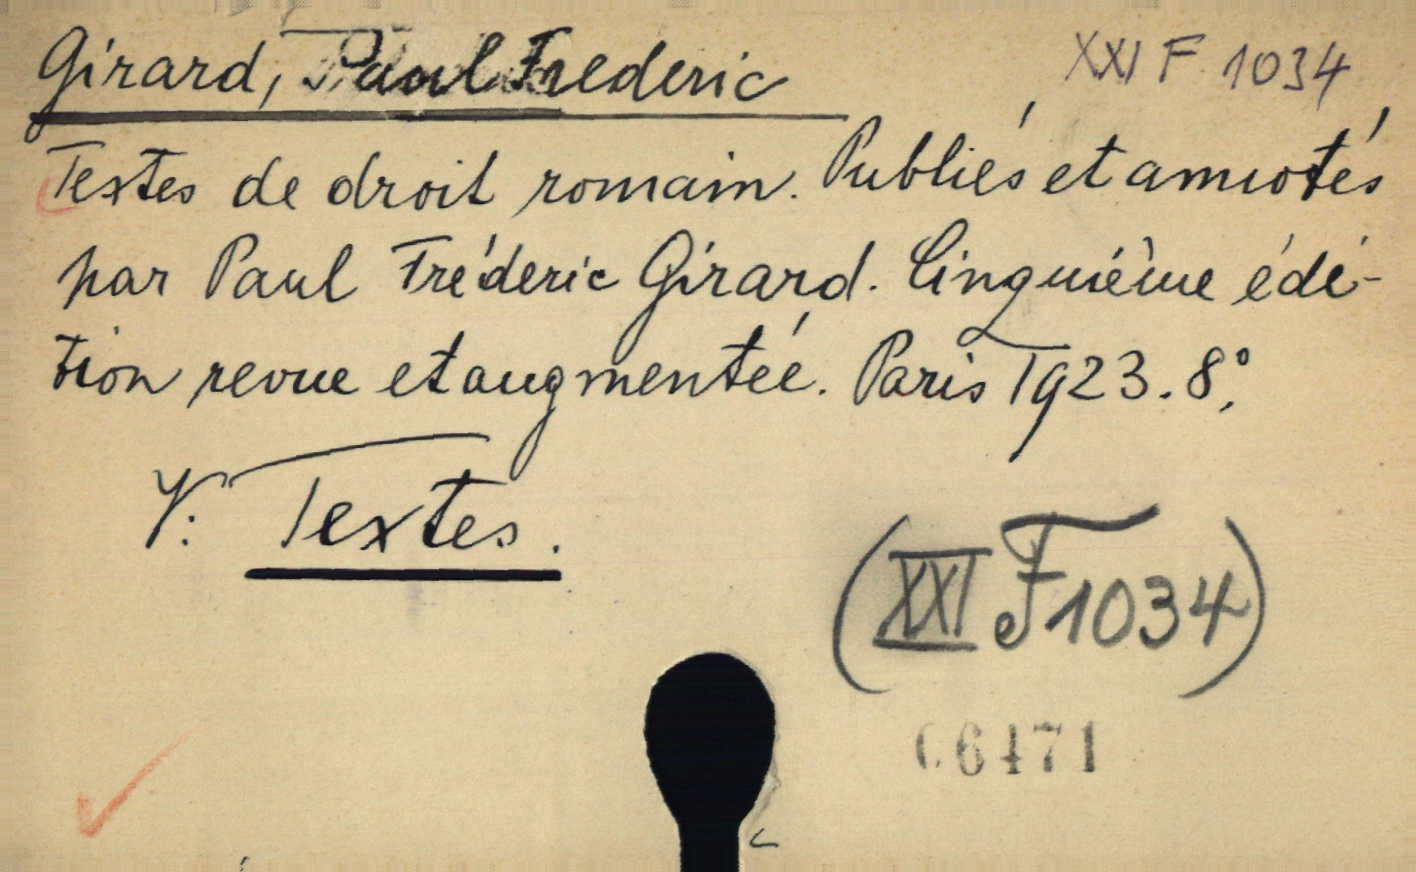 Girard, Paul Frederic XXI F 1034
Textes de droit romain. Publiés et annotés
par Paul Fréderic Girard. Cinquième édi-
tion revue et augmentée. Paris 1923. 8°.
V: Textes.
(XXI F 1034)
C6471